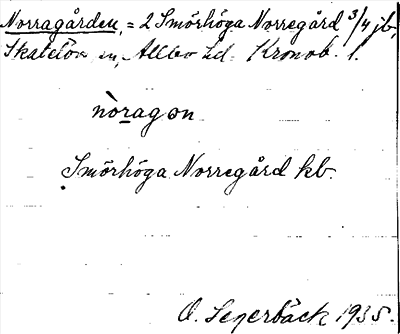 Norragården, = 2 Smörhöga Norregård 3/4 jb.
Skatelövs sn, Allbo hd. Kronob. l.
nòragon
Smörhöga Norregård kb.
O. Senerbäck 1935.